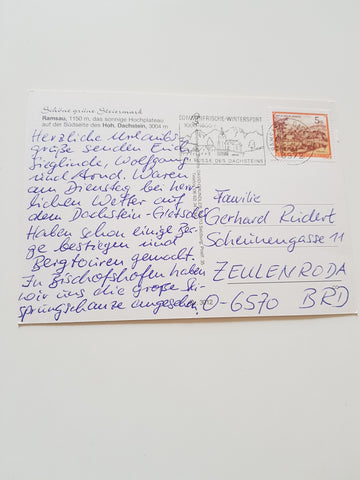 Schöne grüne Steiermark
Ramsau, 1150 m, das sonnige Hochplateau
auf der Südseite des Hoh. Dachstein, 3004 m
Herzliche Urlaubs-
grüße senden Euch
Sieglinde, Wolfgang
und Arnd. Waren
am Dienstag bei herr-
lichen Wetter auf
dem Dachstein-Gletscher
Haben schon einige Ber-
ge bestiegen und
Bergtouren gemacht.
In Bischofshofen haben
wir uns die große Ski-
sprungschanze angesehen.
SOMMERFRISCHE-WINTERSPORT
DES DACHSTEINS
5 S
Familie
Gerhard Rudert
Scheunengasse 11
ZEULENRODA
O-6570 BRD